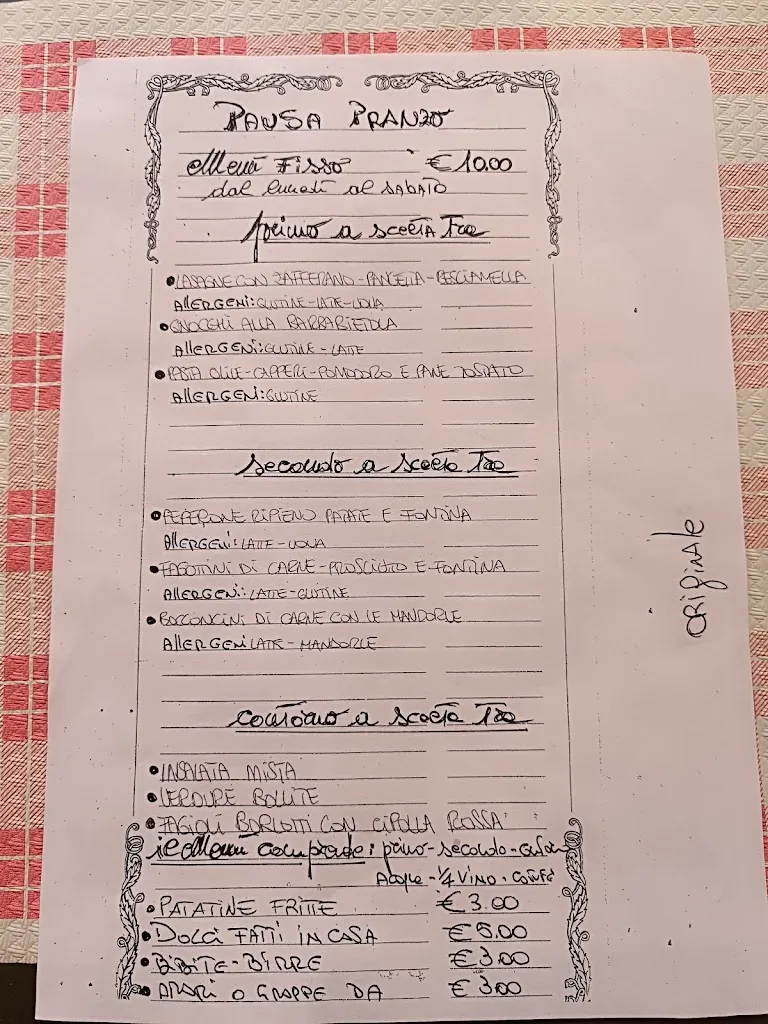 PAUSA PRANZO
Menù Fisso € 10.00
dal lunedì al SABATO
primo a scelta Tra
•LASAGNE CON ZAFFERANO-PANCETTA-BESCIAMELLA
AllERGENi:GLUTINE-LATTE-UOVA
•GNOCCHI ALLA BARBABIETOLA
AllERGENi:GLUTINE-LATTE
•PASTA OLIVE-CAPPERI-POMODORO E PANE TOSTATO
AllERGENi:GLUTINE
secondo a scelta Tra
•PEPERONE RIPIENO PATATE E FONTINA
AllERGENi:LATTE-UOVA
•FAGOTTINI DI CARNE-PROSCIUTTO E FONTINA
AllERGENi:LATTE-GLUTINE
•BOCCONCINI DI CARNE CON LE MANDORLE
AllERGENi LATTE-MANDORLE
contorno a scelta Tra
•INSALATA MISTA
•VERDURE BOLLITE
•FAGIOLI BORLOTTI CON CIPOLLA ROSSA
il Menù comprende: primo-secondo-contorno
Acqua-1/4 VINO-CAFFÈ
•PATATINE FRITTE € 3.00
•DOLCI FATTI IN CASA € 5.00
•BIBITE-BIRRE € 3.00
•AMARI O GRAPPE DA € 3.00
ORIGINALE